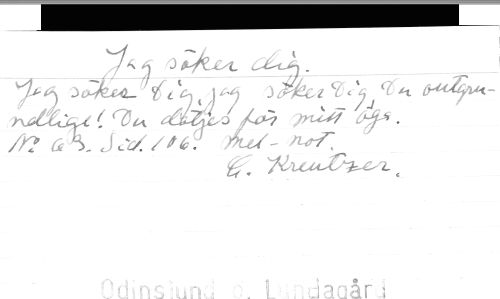 Jag söker dig.
Jag söker Dig, jag söker Dig Du outgru-
ndlige! Du döljes för mitt öga.
No 63. Sid. 106. mel-not.
C. Kreutzer.
Odinslund o. Lundagård